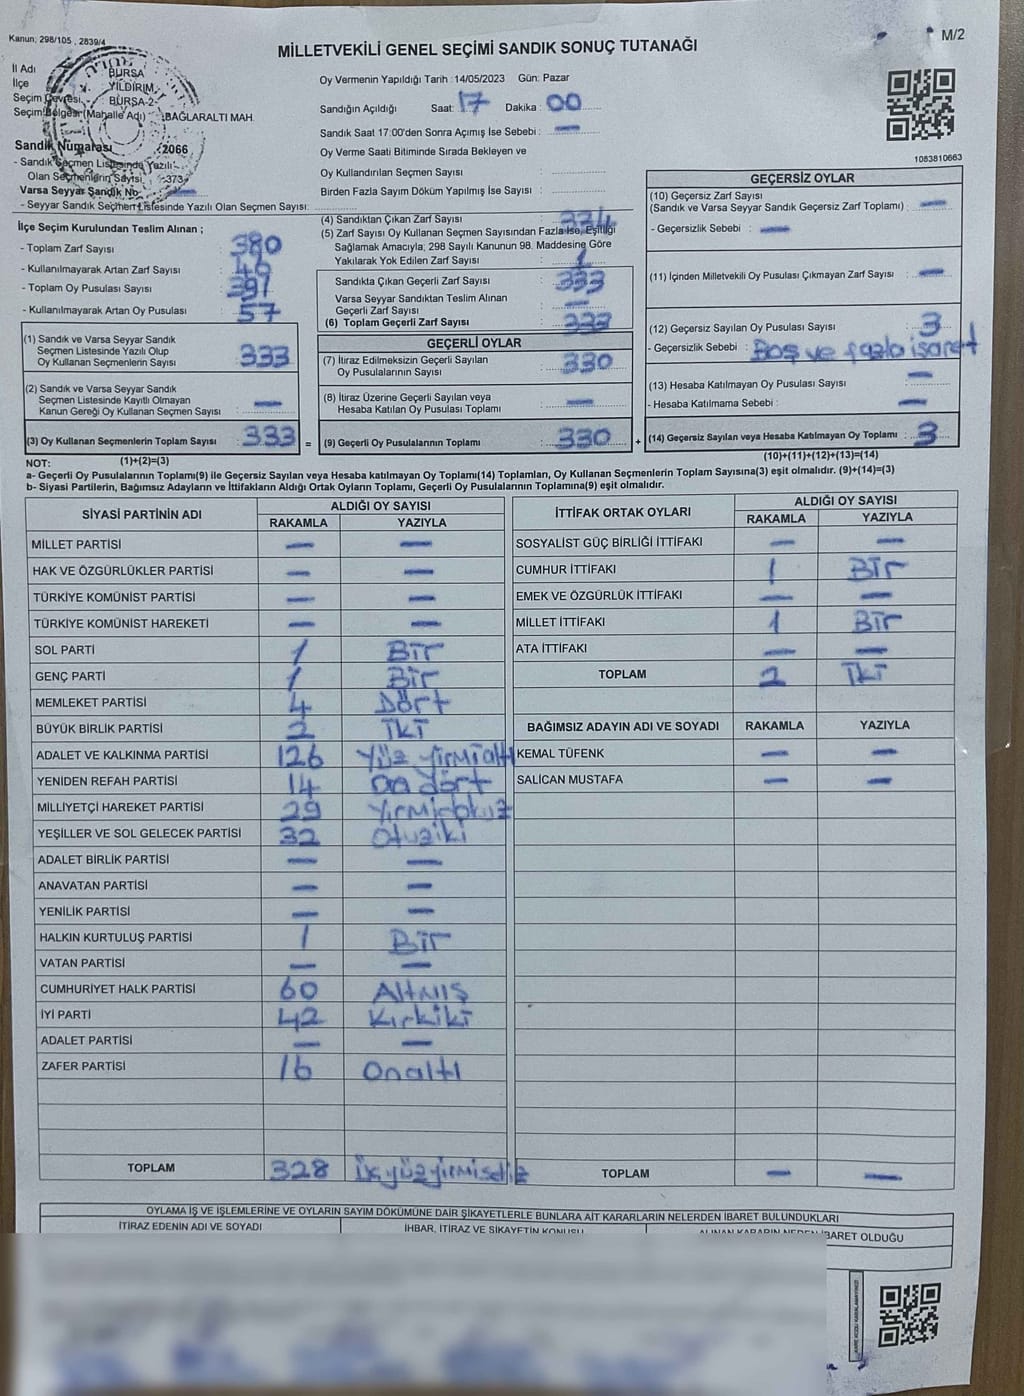 Kanun; 298/105 , 2839/4
M/2
MİLLETVEKİLİ GENEL SEÇİMİ SANDIK SONUÇ TUTANAĞI
İl Adı BURSA
İlçe YILDIRIM
Seçim Çevresi BURSA-2
Seçim Bölgesi (Mahalle Adı) BAĞLARALTI MAH.
Sandık Numarası :2066
- Sandık Seçmen Listesinde Yazılı
Olan Seçmenlerin Sayısı :373
Varsa Seyyar Sandık No —
- Seyyar Sandık Seçmen Listesinde Yazılı Olan Seçmen Sayısı:
Oy Vermenin Yapıldığı Tarih :14/05/2023 Gün: Pazar
Sandığın Açıldığı Saat: 17 Dakika : 00
Sandık Saat 17:00'den Sonra Açımış İse Sebebi : —
Oy Verme Saati Bitiminde Sırada Bekleyen ve
Oy Kullandırılan Seçmen Sayısı :
Birden Fazla Sayım Döküm Yapılmış İse Sayısı :
1083810663
İlçe Seçim Kurulundan Teslim Alınan ;
- Toplam Zarf Sayısı : 380
- Kullanılmayarak Artan Zarf Sayısı : 46
- Toplam Oy Pusulası Sayısı : 391
- Kullanılmayarak Artan Oy Pusulası : 57
(1) Sandık ve Varsa Seyyar Sandık
Seçmen Listesinde Yazılı Olup
Oy Kullanan Seçmenlerin Sayısı : 333
(2) Sandık ve Varsa Seyyar Sandık
Seçmen Listesinde Kayıtlı Olmayan
Kanun Gereği Oy Kullanan Seçmen Sayısı : —
(3) Oy Kullanan Seçmenlerin Toplam Sayısı : 333 =
(4) Sandıktan Çıkan Zarf Sayısı : 334
(5) Zarf Sayısı Oy Kullanan Seçmen Sayısından Fazla İse, Eşitliği
Sağlamak Amacıyla; 298 Sayılı Kanunun 98. Maddesine Göre
Yakılarak Yok Edilen Zarf Sayısı : 1
Sandıkta Çıkan Geçerli Zarf Sayısı : 333
Varsa Seyyar Sandıktan Teslim Alınan
Geçerli Zarf Sayısı : —
(6) Toplam Geçerli Zarf Sayısı : 333
GEÇERLİ OYLAR
(7) İtiraz Edilmeksizin Geçerli Sayılan
Oy Pusulalarının Sayısı : 330
(8) İtiraz Üzerine Geçerli Sayılan veya
Hesaba Katılan Oy Pusulası Toplamı : —
(9) Geçerli Oy Pusulalarının Toplamı : 330 +
GEÇERSİZ OYLAR
(10) Geçersiz Zarf Sayısı
(Sandık ve Varsa Seyyar Sandık Geçersiz Zarf Toplamı) : —
- Geçersizlik Sebebi : —
(11) İçinden Milletvekili Oy Pusulası Çıkmayan Zarf Sayısı : —
(12) Geçersiz Sayılan Oy Pusulası Sayısı : 3
- Geçersizlik Sebebi : Boş ve fazla işaret
(13) Hesaba Katılmayan Oy Pusulası Sayısı : —
- Hesaba Katılmama Sebebi : —
(14) Geçersiz Sayılan veya Hesaba Katılmayan Oy Pusulası Toplamı : 3
NOT: (1)+(2)=(3)
(10)+(11)+(12)+(13)=(14)
a- Geçerli Oy Pusulalarının Toplamı(9) ile Geçersiz Sayılan veya Hesaba katılmayan Oy Toplamı(14) Toplamları, Oy Kullanan Seçmenlerin Toplam Sayısına(3) eşit olmalıdır. (9)+(14)=(3)
b- Siyasi Partilerin, Bağımsız Adayların ve İttifakların Aldığı Ortak Oyların Toplamı, Geçerli Oy Pusulalarının Toplamına(9) eşit olmalıdır.
SİYASİ PARTİNİN ADI
ALDIĞI OY SAYISI
RAKAMLA YAZIYLA
MİLLET PARTİSİ — —
HAK VE ÖZGÜRLÜKLER PARTİSİ — —
TÜRKİYE KOMÜNİST PARTİSİ — —
TÜRKİYE KOMÜNİST HAREKETİ — —
SOL PARTİ 1 Bir
GENÇ PARTİ 1 Bir
MEMLEKET PARTİSİ 4 Dört
BÜYÜK BİRLİK PARTİSİ 2 İki
ADALET VE KALKINMA PARTİSİ 126 Yüz yirmialtı
YENİDEN REFAH PARTİSİ 14 On dört
MİLLİYETÇİ HAREKET PARTİSİ 29 Yirmidokuz
YEŞİLLER VE SOL GELECEK PARTİSİ 32 Otuziki
ADALET BİRLİK PARTİSİ — —
ANAVATAN PARTİSİ — —
YENİLİK PARTİSİ — —
HALKIN KURTULUŞ PARTİSİ 1 Bir
VATAN PARTİSİ — —
CUMHURİYET HALK PARTİSİ 60 Altmış
İYİ PARTİ 42 Kırkiki
ADALET PARTİSİ — —
ZAFER PARTİSİ 16 Onaltı
TOPLAM 328
İTTİFAK ORTAK OYLARI
ALDIĞI OY SAYISI
RAKAMLA YAZIYLA
SOSYALİST GÜÇ BİRLİĞİ İTTİFAKI — —
CUMHUR İTTİFAKI 1 Bir
EMEK VE ÖZGÜRLÜK İTTİFAKI — —
MİLLET İTTİFAKI 1 Bir
ATA İTTİFAKI — —
TOPLAM 2 İki
BAĞIMSIZ ADAYIN ADI VE SOYADI RAKAMLA YAZIYLA
KEMAL TÜFENK — —
SALİCAN MUSTAFA — —
TOPLAM — —
OYLAMA İŞ VE İŞLEMLERİNE VE OYLARIN SAYIM DÖKÜMÜNE DAİR ŞİKAYETLERLE BUNLARA AİT KARARLARIN NELERDEN İBARET BULUNDUKLARI
İTİRAZ EDENİN ADI VE SOYADI
İHBAR, İTİRAZ VE ŞİKAYETİN KONUSU
ALINAN KARARIN NEDEN İBARET OLDUĞU